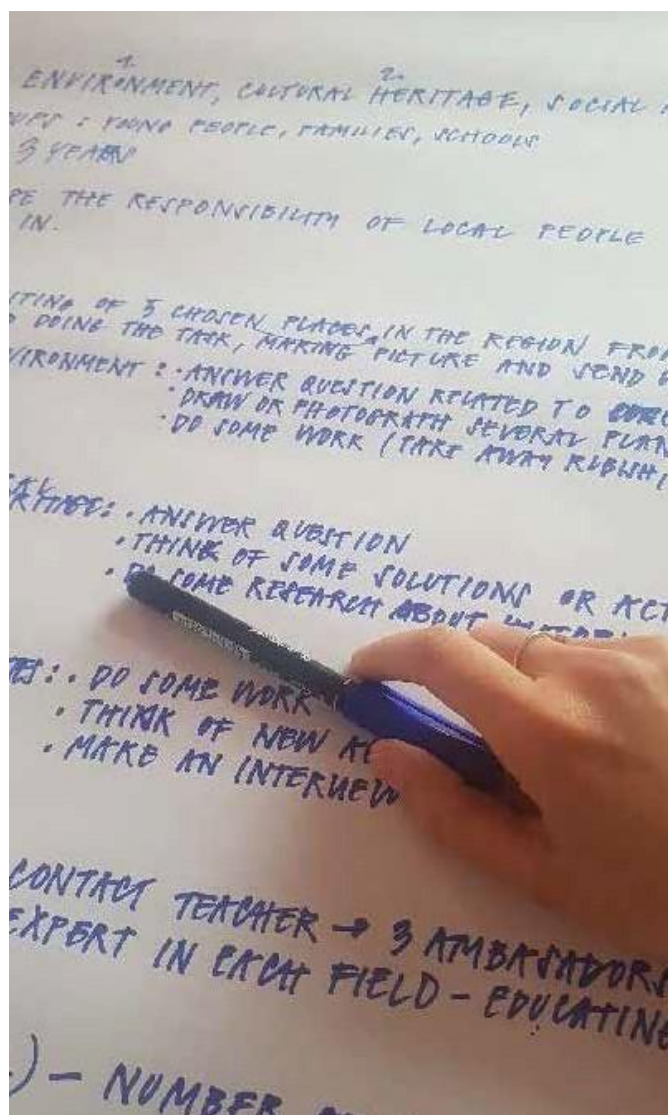 1. 2.
ENVIRONMENT, CULTURAL HERITAGE, SOCIAL
: YOUNG PEOPLE, FAMILIES, SCHOOLS
3 YEARS
THE RESPONSIBILITY OF LOCAL PEOPLE
IN.
OF 3 CHOSEN PLACES IN THE REGION FROM
DOING THE TASK, MAKING PICTURE AND SEND
: • ANSWER QUESTION RELATED TO
• DRAW OR PHOTOGRAPH SEVERAL
• DO SOME WORK (TAKE AWAY RUBISH,
: • ANSWER QUESTION
• THINK OF SOME SOLUTIONS OR
• DO SOME RESEARCH ABOUT
: • DO SOME WORK
• THINK OF NEW
• MAKE AN INTERVIEW
CONTACT TEACHER → 3 AMBASADORS
EXPERT IN EACH FIELD - EDUCATING
) - NUMBER